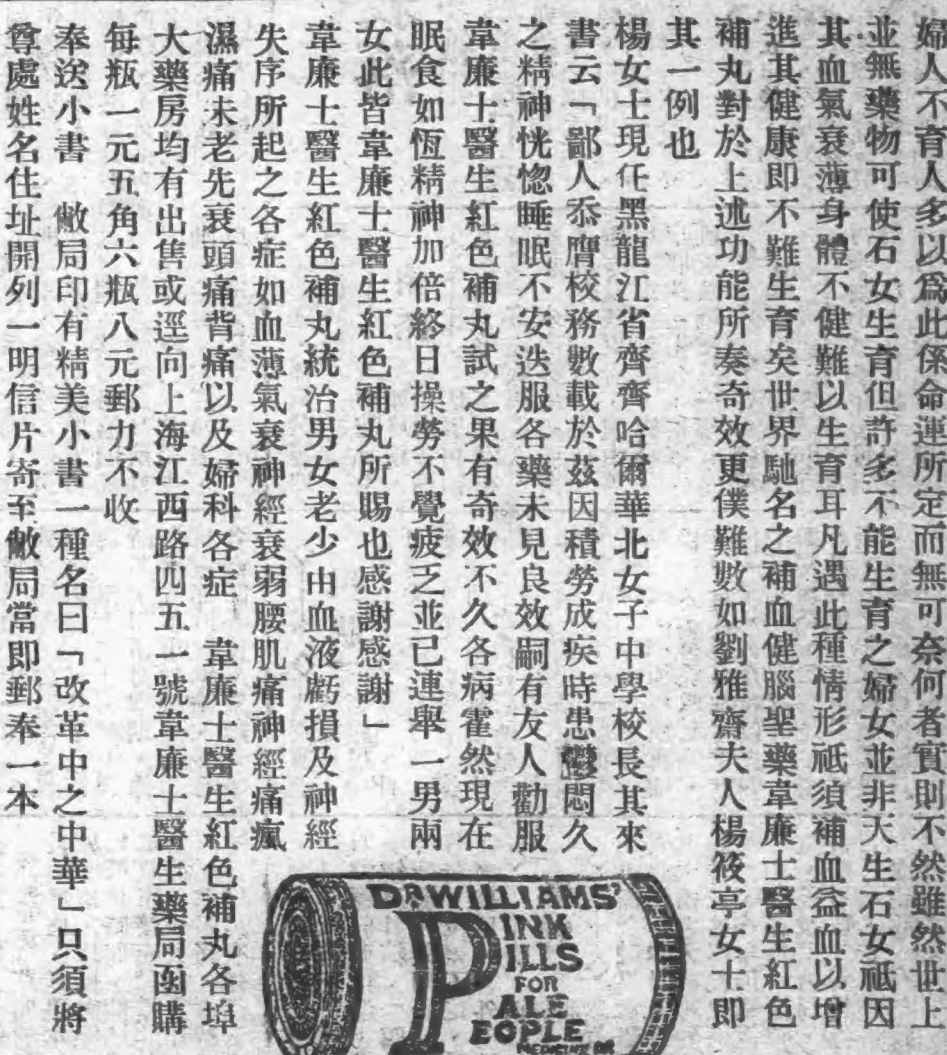 婦人不育人多以爲此係命運所定而無可奈何者實則不然雖然世上
並無藥物可使石女生育但許多不能生育之婦女並非天生石女祗因
其血氣衰薄身體不健難以生育耳凡遇此種情形祗須補血益血以增
進其健康即不難生育矣世界馳名之補血健腦聖藥韋廉士醫生紅色
補丸對於上述功能所奏奇效更僕難數如劉雅齋夫人楊筱亭女士即
其一例也
楊女士現任黑龍江省齊齊哈爾華北女子中學校長其來
書云「鄙人忝膺校務數載於茲因積勞成疾時患鬱悶久
之精神恍惚睡眠不安迭服各藥未見良效嗣有友人勸服
韋廉士醫生紅色補丸試之果有奇效不久各病霍然現在
眠食如恆精神加倍終日操勞不覺疲乏並已連舉一男兩
女此皆韋廉士醫生紅色補丸所賜也感謝感謝」
韋廉士醫生紅色補丸統治男女老少由血液虧損及神經
失序所起之各症如血薄氣衰神經衰弱腰肌痛神經痛瘋
濕痛未老先衰頭痛背痛以及婦科各症　韋廉士醫生紅色補丸各埠
大藥房均有出售或逕向上海江西路四五一號韋廉士醫生藥局函購
每瓶一元五角六瓶八元郵力不收
奉送小書　敝局印有精美小書一種名曰「改革中之中華」只須將
尊處姓名住址開列一明信片寄至敝局當即郵奉一本
DR WILLIAMS'
PINK
PILLS
FOR
PALE
PEOPLE